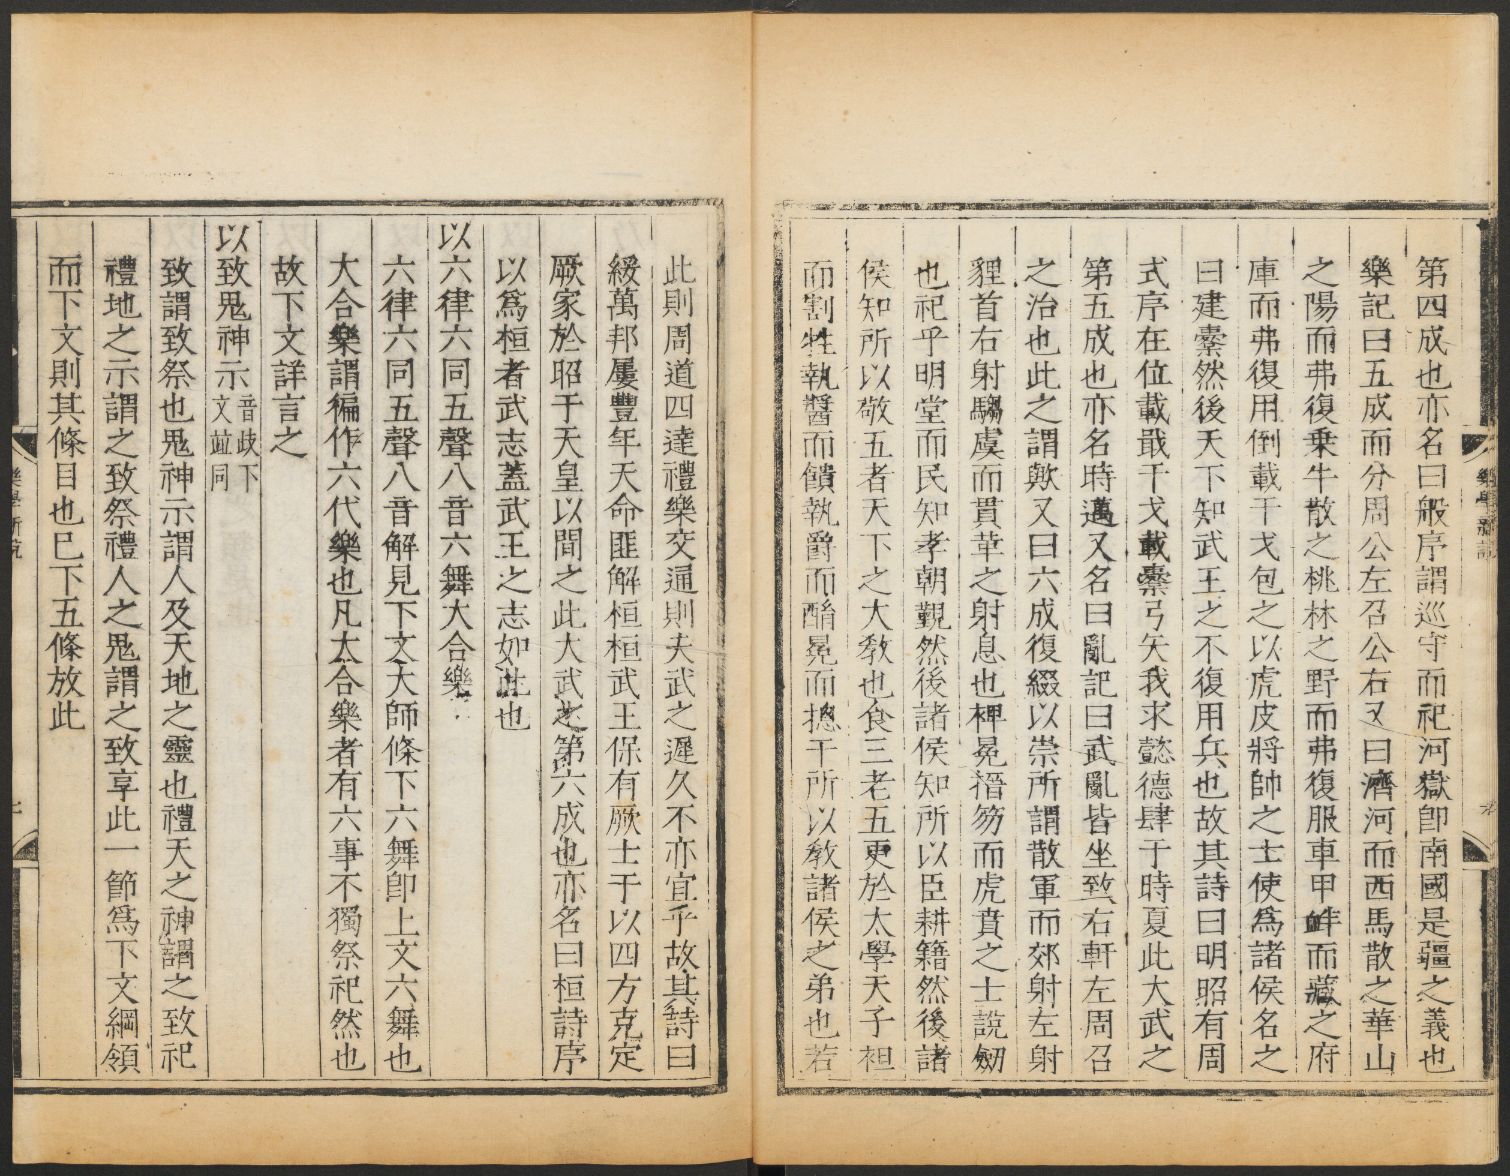 第四成也亦名曰般序謂巡守而祀河嶽卽南國是疆之義也
樂記曰五成而分周公左召公右又曰濟河而西馬散之華山
之陽而弗復乗牛散之桃林之野而弗復服車甲衅而藏之府
庫而弗復用倒載干戈包之以虎皮將帥之士使爲諸侯名之
曰建櫜然後天下知武王之不復用兵也故其詩曰明昭有周
式序在位載戢干戈載櫜弓矢我求懿德肆于時夏此大武之
第五成也亦名時邁又名曰亂記曰武亂皆坐致右軒左周召
之治也此之謂歟又曰六成復綴以崇所謂散軍而郊射左射
貍首右射騶虞而貫革之射息也裨冕搢笏而虎賁之士說劒
也祀乎明堂而民知孝朝覲然後諸侯知所以臣耕籍然後諸
侯知所以敬五者天下之大敎也食三老五更於太學天子袒
而割牲執醬而饋執爵而酳冕而揔干所以敎諸侯之弟也若
樂學新說
此則周道四達禮樂交通則夫武之遲久不亦宜乎故其詩曰
綏萬邦屢豐年天命匪解桓桓武王保有厥士于以四方克定
厥家於昭于天皇以間之此大武之第六成也亦名曰桓詩序
以爲桓者武志蓋武王之志如此也
以六律六同五聲八音六舞大合樂
六律六同五聲八音解見下文大師條下六舞卽上文六舞也
大合樂謂徧作六代樂也凡大合樂者有六事不獨祭祀然也
故下文詳言之
以致鬼神示音歧下文竝同
致謂致祭也鬼神示謂人及天地之靈也禮天之神謂之致祀
禮地之示謂之致祭禮人之鬼謂之致享此一節爲下文綱領
而下文則其條目也巳下五條放此
樂學新說